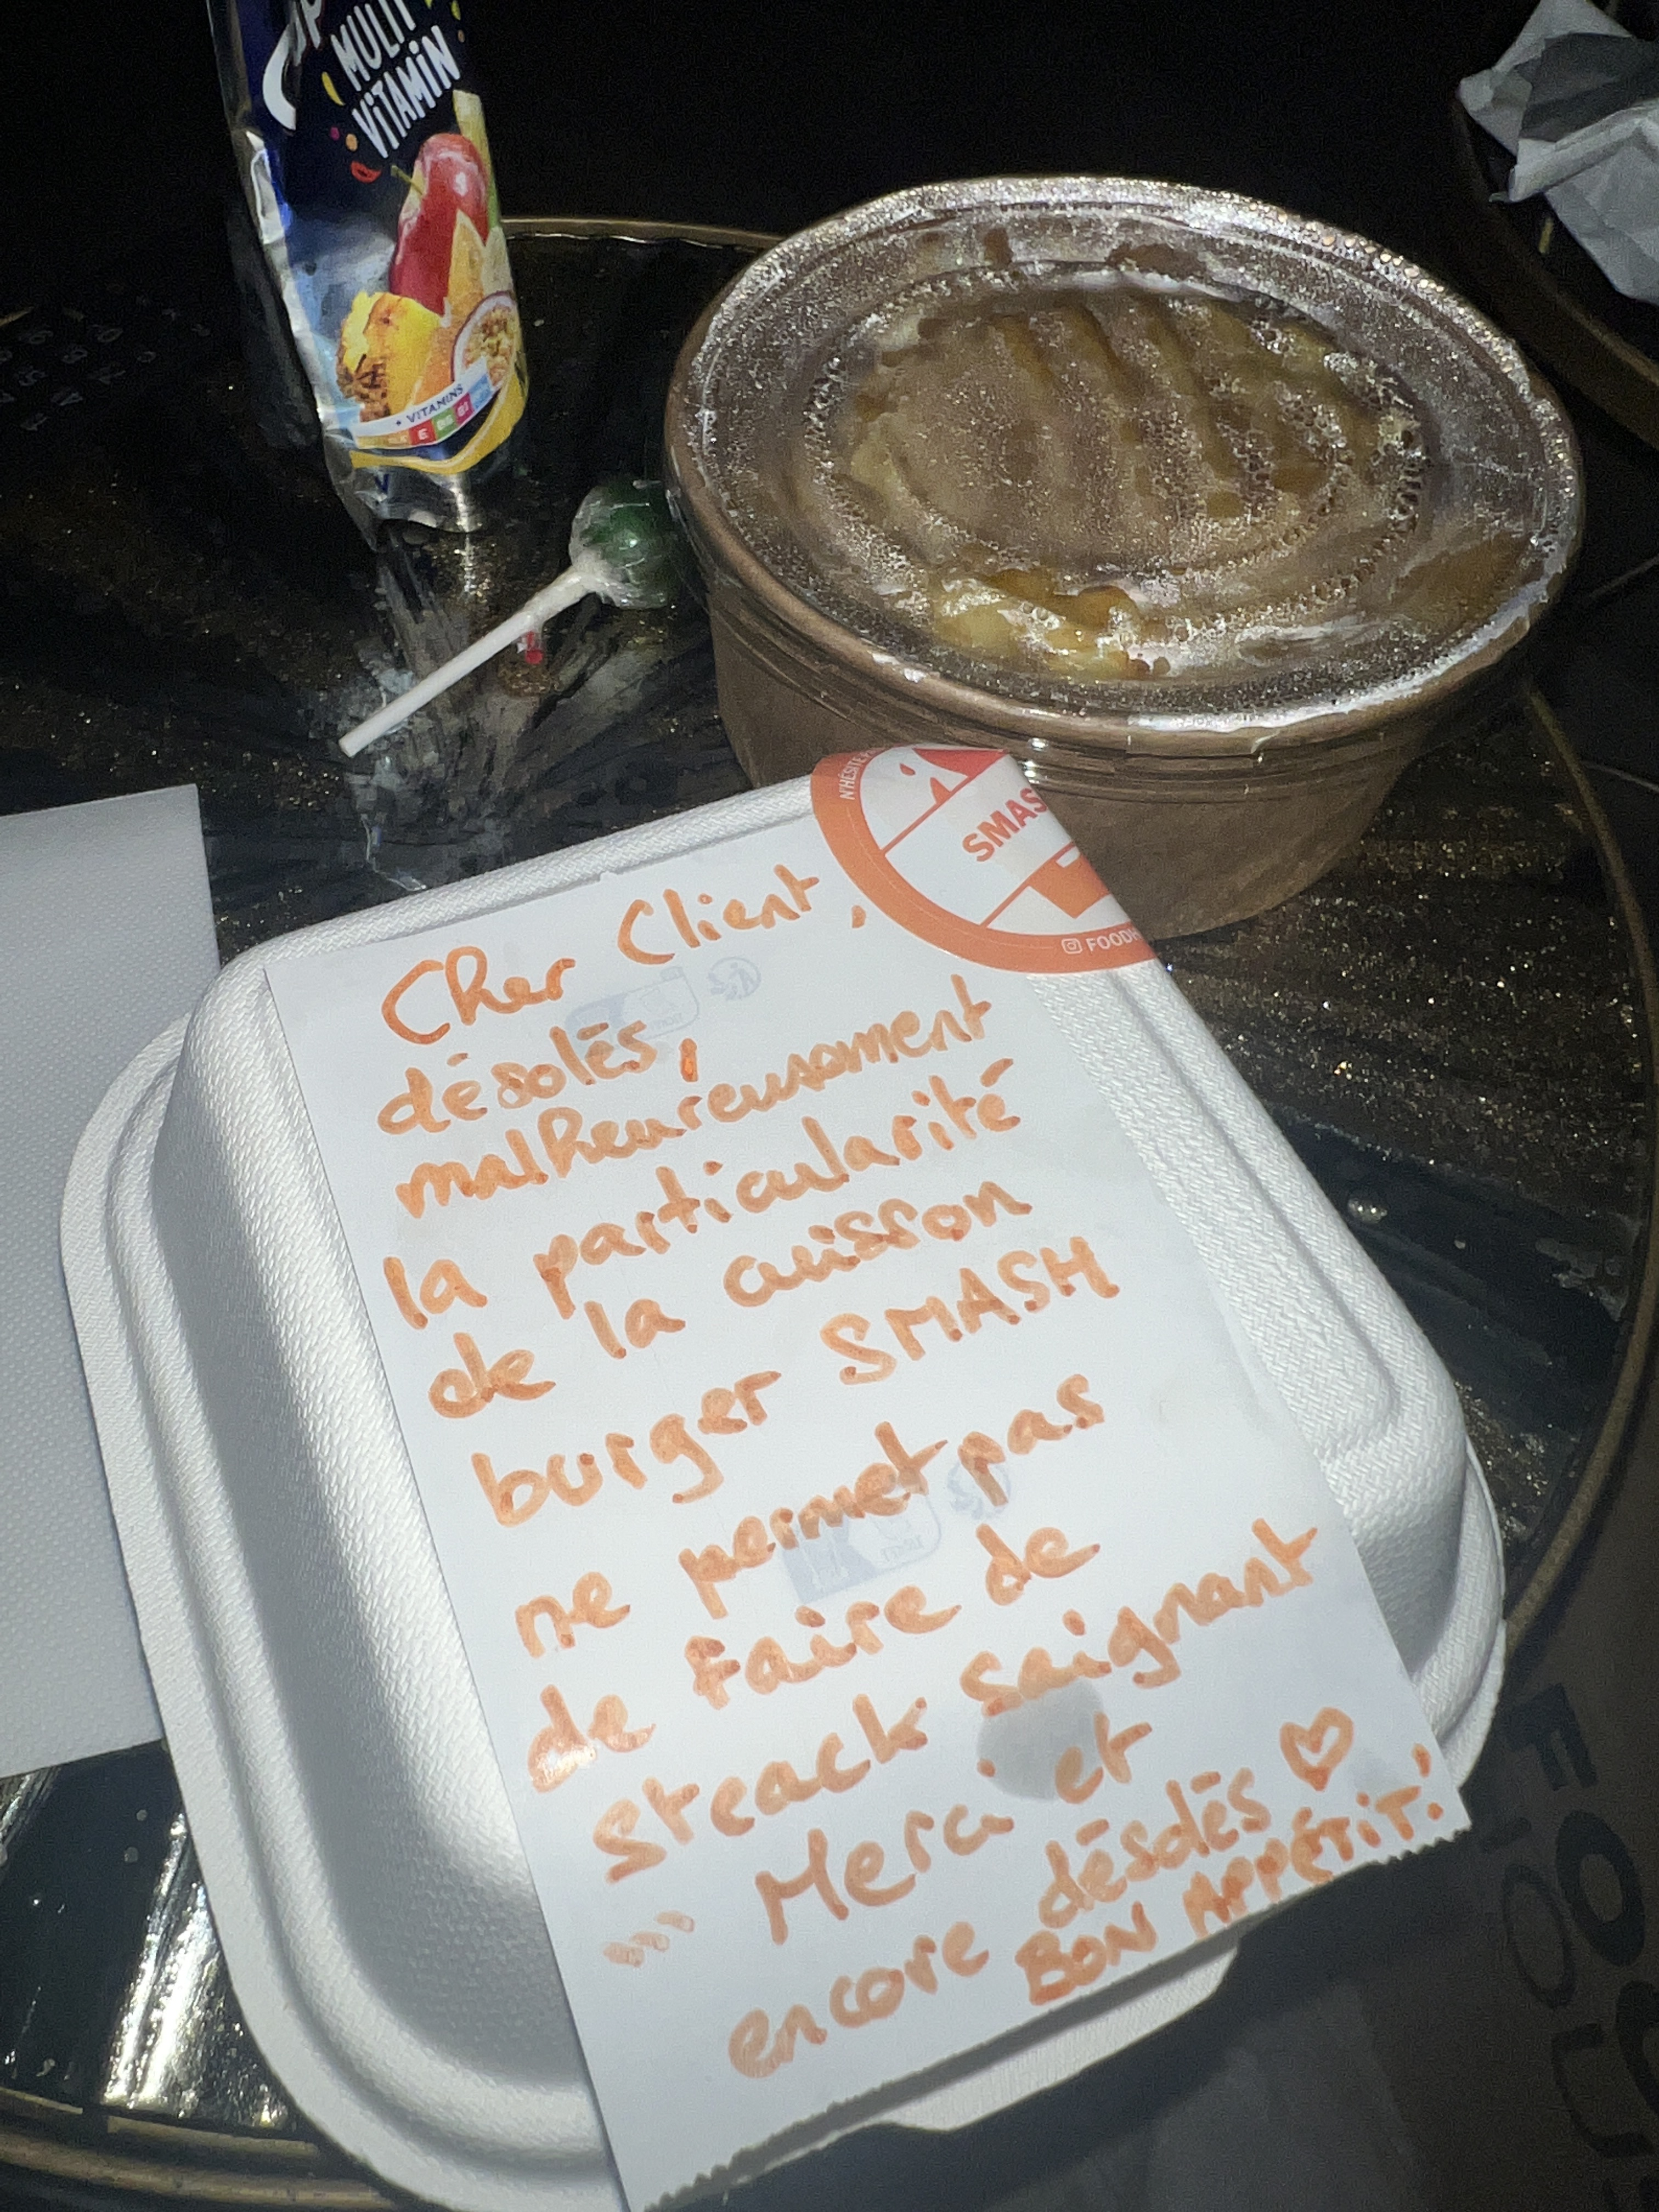 MULTI
VITAMIN
VITAMINS
N'HÉSITE
SMAS
FOODH
Cher Client,
désolés,
malheureusement
la particularité
de la cuisson
burger SMASH
ne permet pas
de faire de
steack saignant
Merci et
encore désolés ♡
BON APPÉTIT!